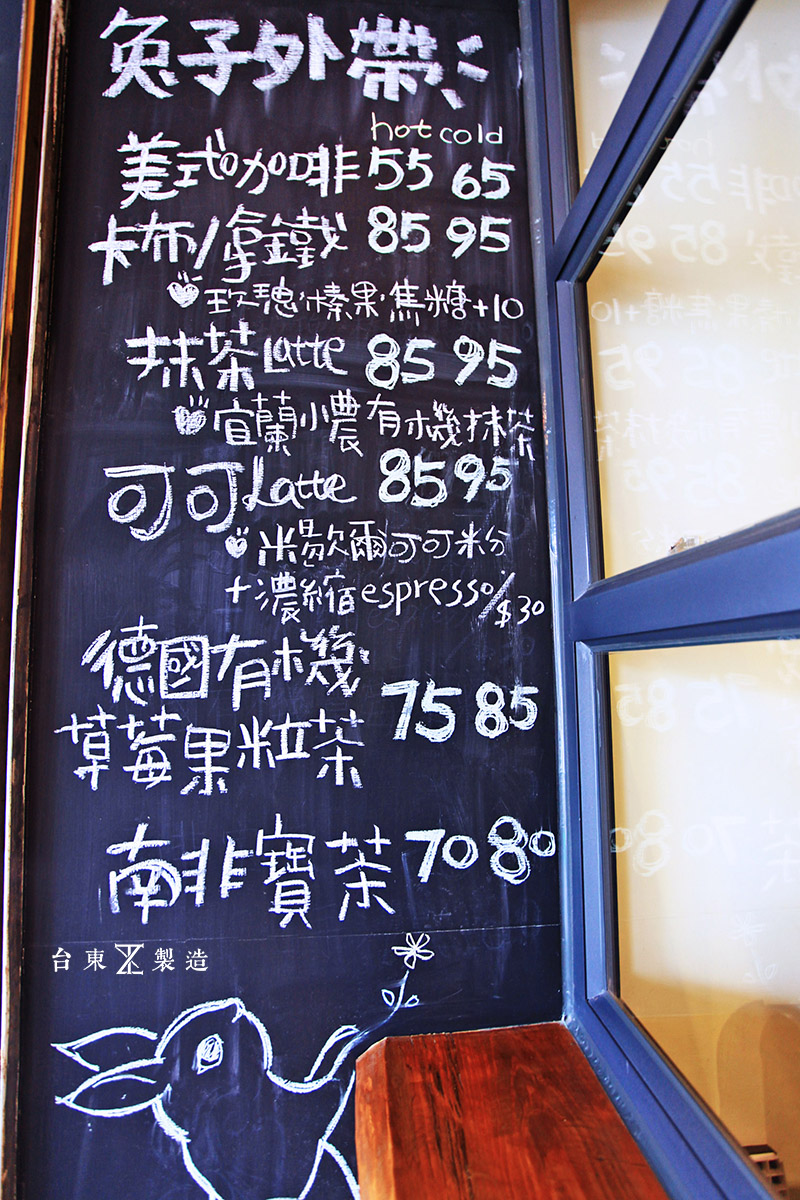 兔子外帶
hot cold
美式咖啡 55 65
卡布/拿鐵 85 95
玫瑰·榛果·焦糖+10
抹茶Latte 85 95
宜蘭小農有機抹茶
可可Latte 85 95
米歇爾可可粉
+濃縮espresso/$30
德國有機
草莓果粒茶 75 85
南非寶茶 70 80
台東製造